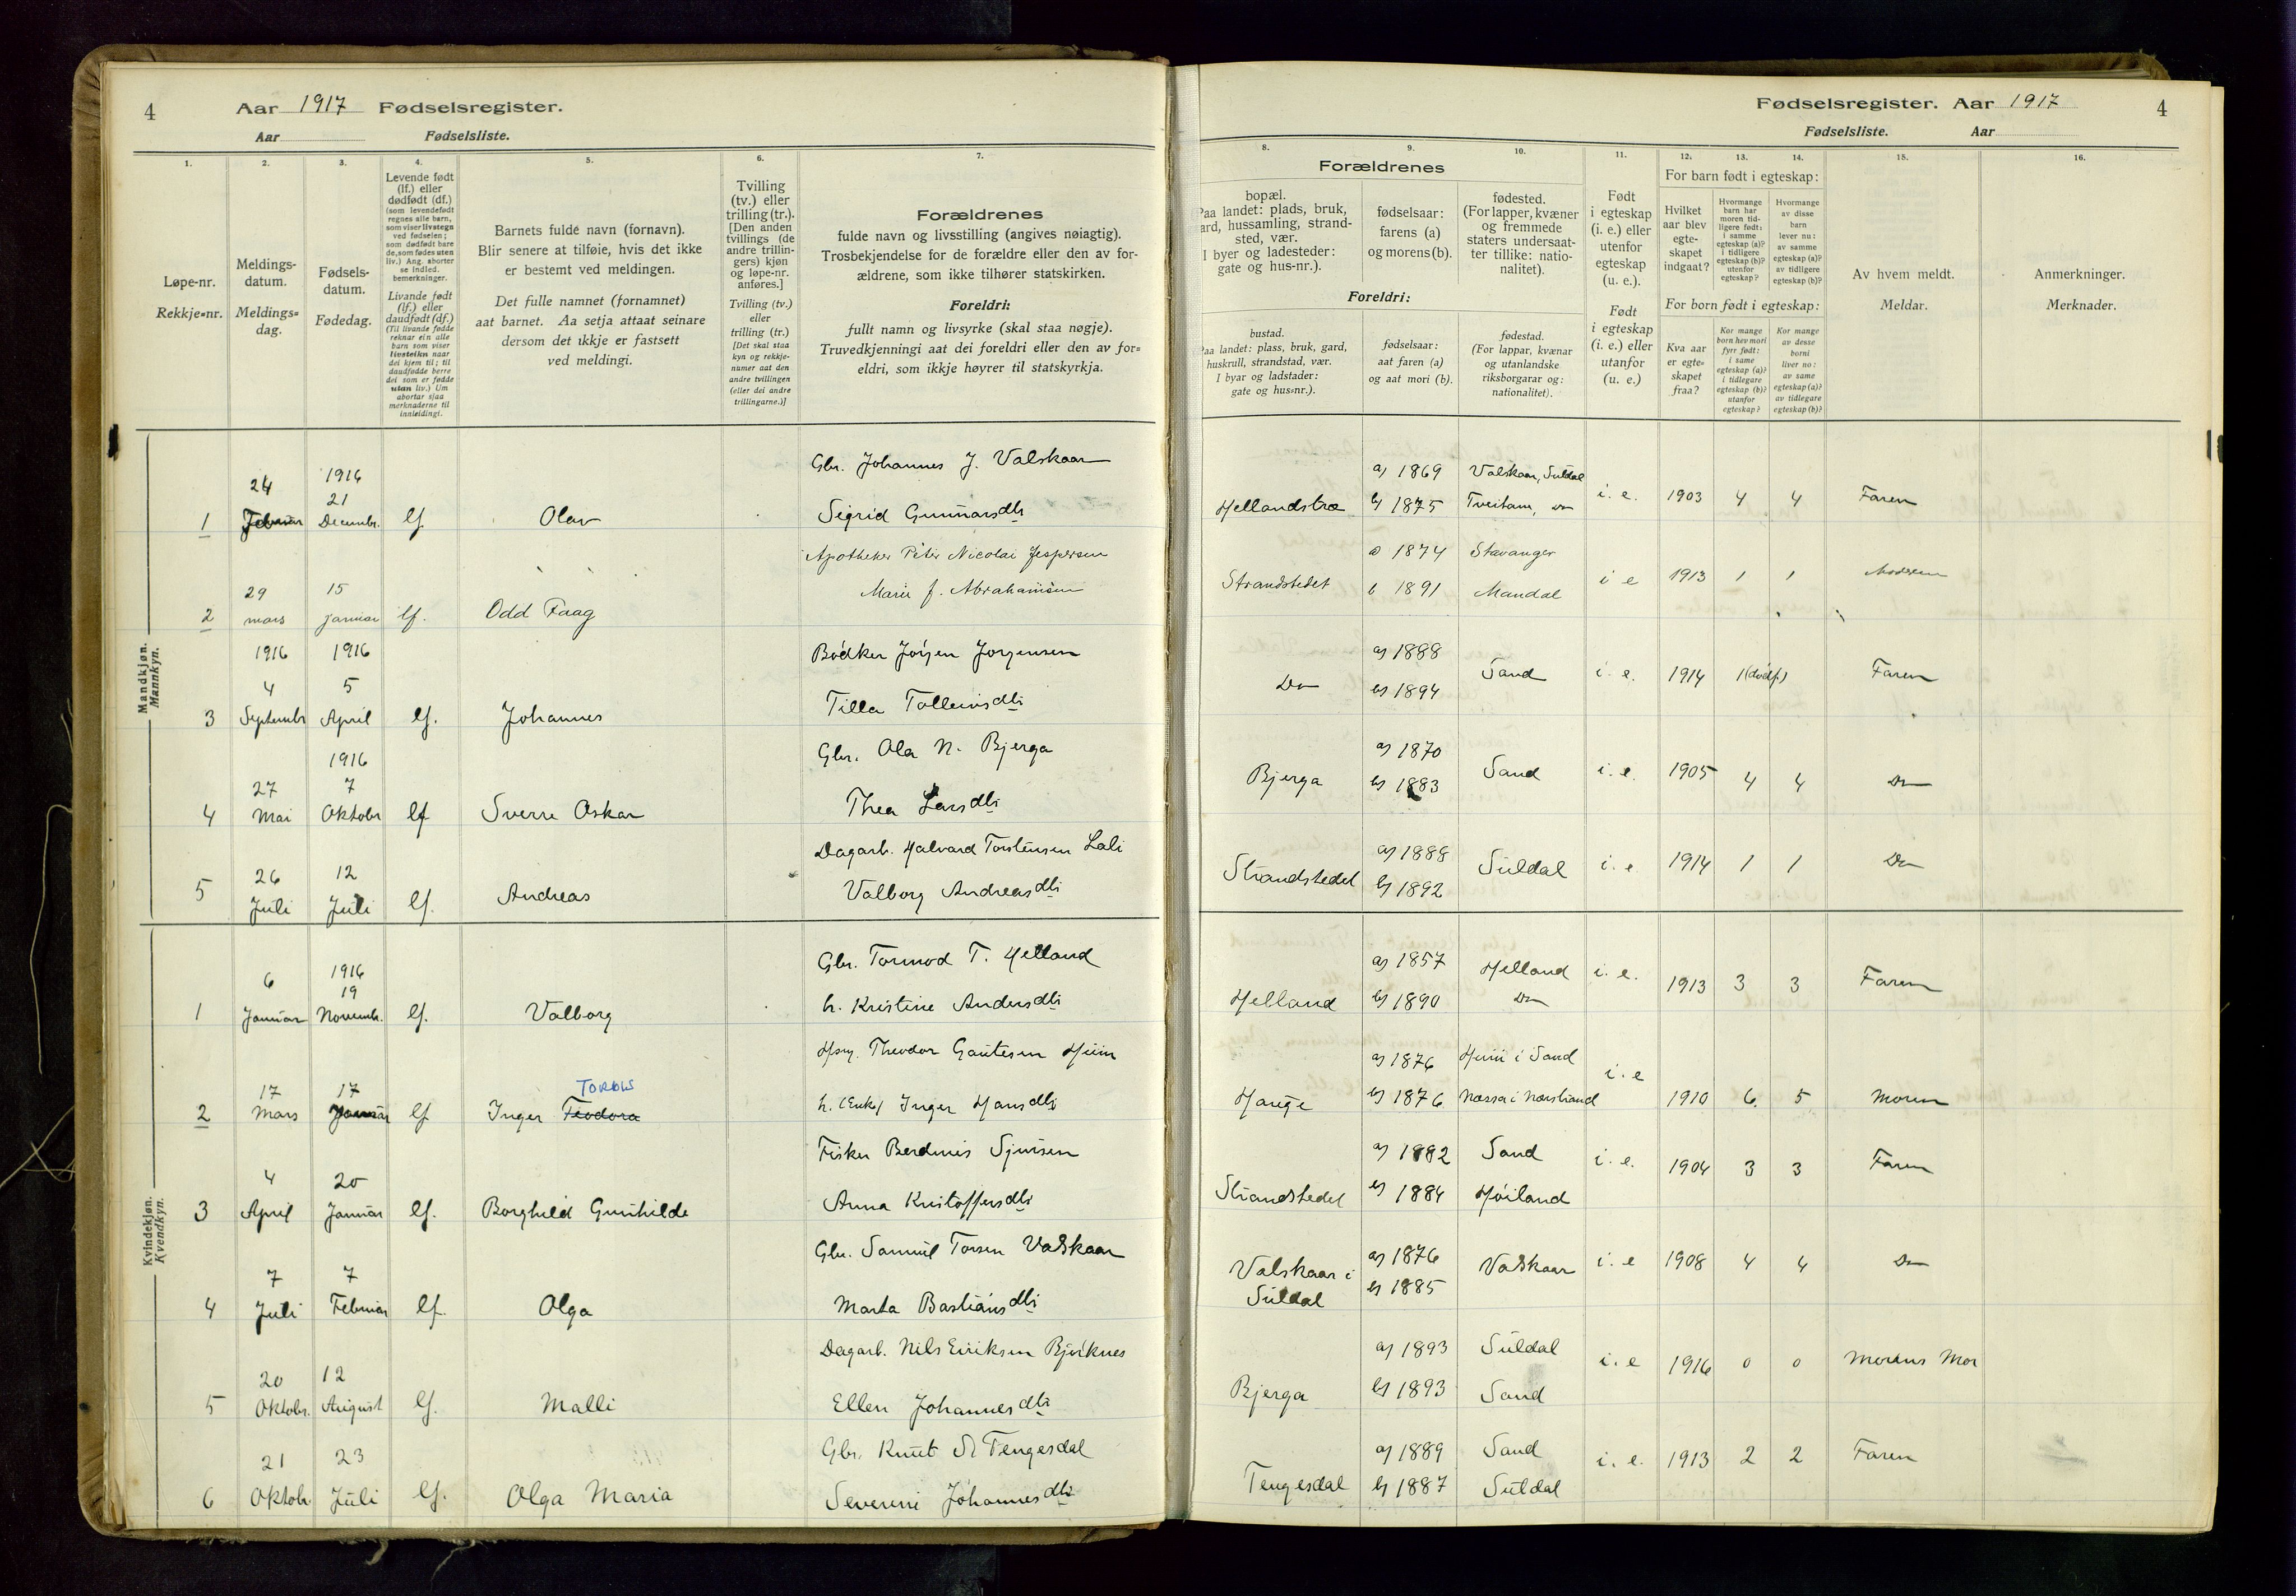 4 Aar 1917 Fødselsregister.
Aar Fødselsliste.
1.
2.
3.
4.
5.
6.
7.
Løpe-nr.
Rekkje=nr.
Meldings-
datum.
Meldings=
dag.
Fødsels-
datum.
Fødedag.
Levende født
(lf.) eller
dødfødt (df.)
(som levendefødt
regnes alle barn,
som viser livstegn
ved fødselen;
som dødfødt bare
de, som fødes uten
liv.) Ang. aborter
se indled.
bemerkninger.
Livande født
(lf.) eller
daudfødt (df.)
(Til livande fødde
reknar ein alle
born som viser
livsteikn naar
dei kjem til; til
daudfødde berre
dei som er fødde
utan liv.) Um
abortar sjaa
merknaderne til
innleidingi.
Barnets fulde navn (fornavn).
Blir senere at tilføie, hvis det ikke
er bestemt ved meldingen.
Det fulle namnet (fornamnet)
aat barnet. Aa setja attaat seinare
dersom det ikkje er fastsett
ved meldingi.
Tvilling
(tv.) eller
trilling (tr.).
[Den anden
tvillings (de
andre trillin-
gers) kjøn
og løpe-nr.
anføres.]
Tvilling (tv.)
eller
trilling (tr.)
[Det skal staa
kyn og rekkje-
numer aat den
andre tvillingen
(eller dei andre
trillingarne.)]
Forældrenes
fulde navn og livsstilling (angives nøiagtig).
Trosbekjendelse for de forældre eller den av for-
ældrene, som ikke tilhører statskirken.
Foreldri:
fullt namn og livsyrke (skal staa nøgje).
Truvedkjenningi aat dei foreldri eller den av for-
eldri, som ikkje høyrer til statskyrkja.
Mandkjøn.
Mannkyn.
1 24 Februar 1916 21 Decembr. lf. Olav
Gbr. Johannes J. Valskaar
Sigrid Gunnarsdtr
2 29 mars 15 januar lf. Odd Faag
Apotheker Peter Nicolai Jespersen
Marie f. Abrahamsen
3 1916 4 Septembr 1916 5 April lf. Johannes
Bødker Jörjen Jorgensen
Tilla Tolleivsdtr
4 27 Mai 1916 7 Oktobr lf Sverre Oskar
Gbr. Ola N. Bjerga
Thea Larsdtr
5 26 Juli 12 Juli lf. Andreas
Dagarb. Halvard Torstensen Lali
Valborg Andreasdtr
Kvindekjøn.
Kvendkyn.
1 6 Januar 1916 19 Novembr. lf. Valborg
Gbr. Tormod T. Helland
h. Kristine Andersdtr
2 17 Mars 17 Januar lf Inger Teodora TORDIS
Theodor Gautesen Heim
h. (Enke) Inger Hansdtr
3 4 April 20 Januar lf. Borghild Gunhilde
Fisker Berdines Sjursen
Anna Kristoffersdtr
4 7 Juli 7 Februar lf. Olga
Gbr. Samuel Torsen Valskaar
Marta Bastiansdtr
5 20 Oktobr. 12 August lf. Malli
Dagarb. Nils Eiriksen Bjørknes
Ellen Johannesdtr
6 21 Oktobr 23 Juli lf. Olga Maria
Gbr. Knut Tengesdal
Severine Johannesdtr
Fødselsregister. Aar 1917 4
Fødselsliste. Aar
8.
9.
10.
11.
12.
13.
14.
15.
16.
Forældrenes
bopæl.
Paa landet: plads, bruk,
gard, hussamling, strand-
sted, vær.
I byer og ladesteder:
gate og hus-nr.).
fødselsaar:
farens (a)
og morens (b).
fødested.
(For lapper, kvæner
og fremmede
staters undersaat-
ter tillike: natio-
nalitet).
Foreldri:
bustad.
Paa landet: plass, bruk, gard,
huskrull, strandstad, vær.
I byar og ladstader:
gate og hus=nr.).
fødselsaar:
aat faren (a)
og aat mori (b).
fødestad.
(For lappar, kvænar
og utanlandske
riksborgarar og:
nationalitet).
Født
i egteskap
(i. e.) eller
utenfor
egteskap
(u. e.).
Født
i egteskap
(i. e.) eller
utanfor
(u. e.)
For barn født i egteskap:
Hvilket
aar blev
egte-
skapet
indgaat?
Hvormange
barn har
moren tid-
ligere født:
i samme
egteskap (a)?
i tidligere
egteskap (b)?
utenfor
egteskap?
Hvormange
av disse
barn
lever nu:
av samme
egteskap (a)?
av tidligere
egteskap (b)?
For born født i egteskap:
Kva aar
er egte-
skapet
fraa?
Kor mange
born hev mori
fyrr født:
i same
egteskap (a)?
i tidlegare
egteskap (b)?
utanfor
egteskap?
Kor mange
av desse
borni
liver no:
av same
egteskap (a)?
av tidlegare
egteskap (b)?
Av hvem meldt.
Meldar.
Anmerkninger.
Merknader.
Hellandstra a) 1869 b) 1875 Valskaar, Suldal Tveitam, Do i. e. 1903 4 4 Faren
Strandstedet a 1874 b 1891 Stavanger Mandal i e 1913 1 1 Moderen
Do a) 1888 b) 1894 Sand i. e. 1914 1 (dødf.) Faren
Bjerga a) 1870 b) 1883 Sand i. e. 1905 4 4 Do
Strandstedet a) 1888 b) 1892 Suldal i. e 1914 1 1 Do
Helland a) 1857 b) 1890 Helland Do i. e. 1913 3 3 Faren
Hauge a) 1876 b) 1876 Heim i Sand Næssa i Nærstrand i. e 1910 6. 5 Moren
Strandstedet a) 1882 b) 1884 Sand Høiland i. e. 1904 3 3 Faren
Valskaar i Suldal a) 1876 b) 1885 Valskaar i. e 1908 4 4 Do
Bjerga a) 1893 b) 1893 Suldal Sand i. e 1916 0 0 Morens Mor
Tengesdal a) 1889 b) 1887 Sand Suldal i. e. 1913 2 2 Faren